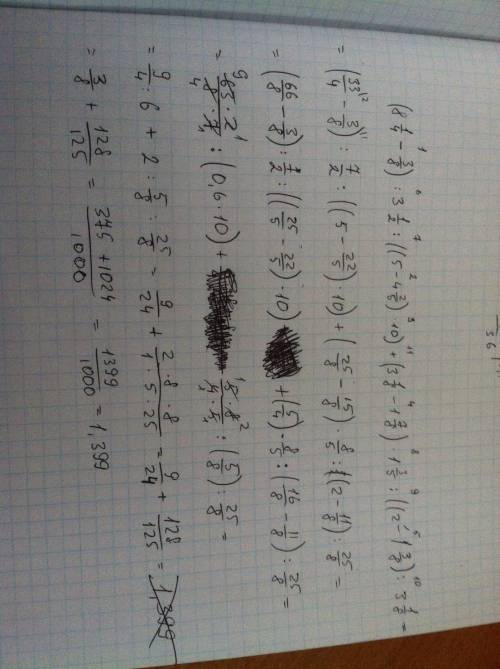 36
(8 1/4 - 3/8) : 3 1/2 : ((5 - 4 2/5) · 10) + (3 1/8 - 1 7/8) · 1 3/5 : ((2 - 1 3/8) : 3 1/8 =
= (33/4 - 3/8) : 7/2 : ((5 - 22/5) · 10) + (25/8 - 15/8) · 8/5 : ((2 - 11/8) : 25/8 =
= (66/8 - 3/8) : 7/2 : ((25/5 - 22/5) · 10) + (5/4) · 8/5 : (16/8 - 11/8) : 25/8 =
= 63 · 2 / 8 · 7 : (0,6 · 10) + 5 · 8 / 4 · 5 : (5/8) : 25/8 =
= 9/4 : 6 + 2 : 5/8 : 25/8 = 9/24 + 2 · 8 · 8 / 1 · 5 · 25 = 9/24 + 128/125 = 1,399
= 3/8 + 128/125 = 375 + 1024 / 1000 = 1399/1000 = 1,399